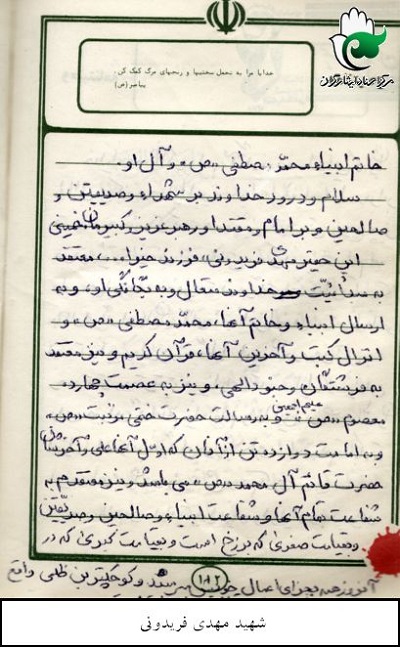 مرکز اسناد ایثارگران
خدایا مرا به تحمل سختیها و رنجهای مرگ کمک کن.
پیامبر (ص)
خاتم انبیاء محمد مصطفی «ص» و آل او.
سلام و درود خداوند بر شهداء و صدیقین و
صالحین و بر امام و مقتدا و رهبر عزیز و کبیرمان خمینی
این حقیر مهدی فریدونی فرزند ... معتقد
به خداوند متعال و به یگانگی او، و به
ارسال انبیاء و خاتم آنها، محمد مصطفی «ص» و
انزال کتب و آخرین آنها، قرآن کریم و نیز معتقد
به فرشتگان و جنود الهی، و نیز به عصمت چهارده
معصوم «ص» علیهم اجمعین و به رسالت حضرت ختمی مرتبت «ص»
و به امامت دوازده تن از آنان که اول آنها علی و آخرشان
حضرت قائم آل محمد «ص» می باشد و نیز معتقدم به
شفاعت تمام آنها و شفاعت انبیاء و صالحین و صدیقین
و قیامت صغری که برزخ است و قیامت کبری که در
آنروز همه بجزای اعمال خویش میرسند و کوچکترین ظلمی واقع
۱۸۲
شهید مهدی فریدونی